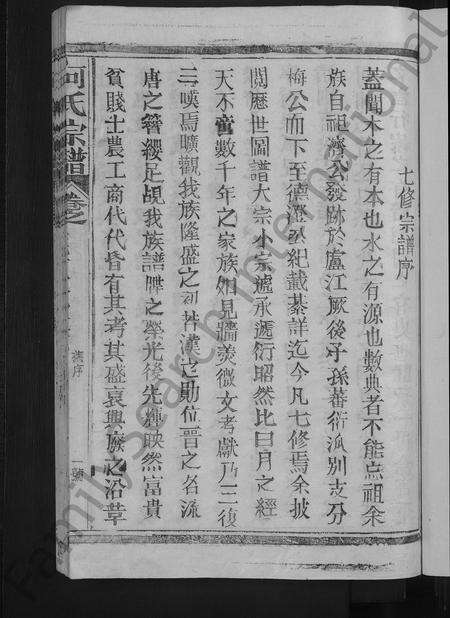 七修宗譜序
蓋聞木之有本也水之有源也數典者不能忘祖余
族自祖濟公發跡於廬江厥後子孫蕃衍派別支分
梅公而下至德澄公紀載綦詳迄今凡七修焉余披
閱歷世圖譜大宗小宗遞承遞衍昭然比日月之經
天不啻數千年之家族如見牆羹徵文考獻乃一二復
三嘆焉曠觀我族隆盛之初若漢之勛位晉之名流
唐之簪纓足覘我族譜牒之榮光後先輝映然富貴
貧賤士農工商代代皆有其考其盛衰興廢之沿革
何氏宗譜 卷之
譜序
一號
Family Search International